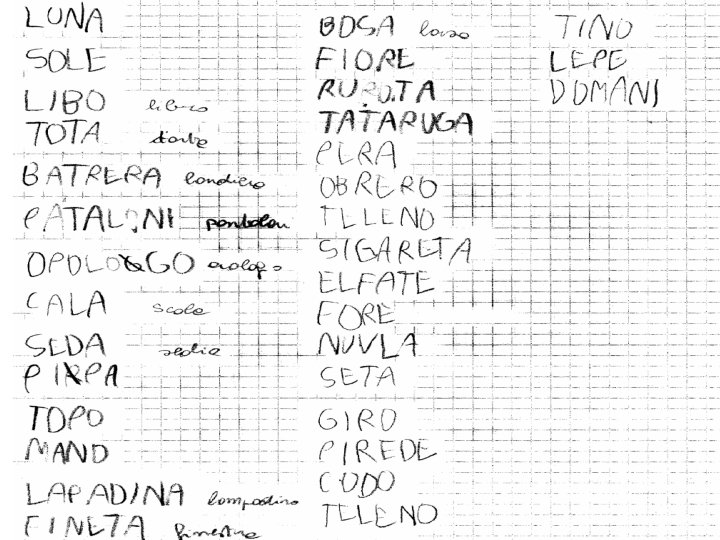 LUNA
SOLE
LIBO libro
TOTA torta
BATRERA bandiera
PATALONI pantalon
OPOLOGO orologio
CALA scala
SEDA sedia
PIPA
TOPO
MANO
LAPADINA lampadina
FINETA finestra
BOSA borsa
FIORE
RUROTA
TATARUGA
PERA
OBRERO
TELENO
SIGARETA
ELFATE
FORE
NUVLA
SETA
GIRO
PIREDE
CODO
TELENO
TINO
LEPE
DOMANI